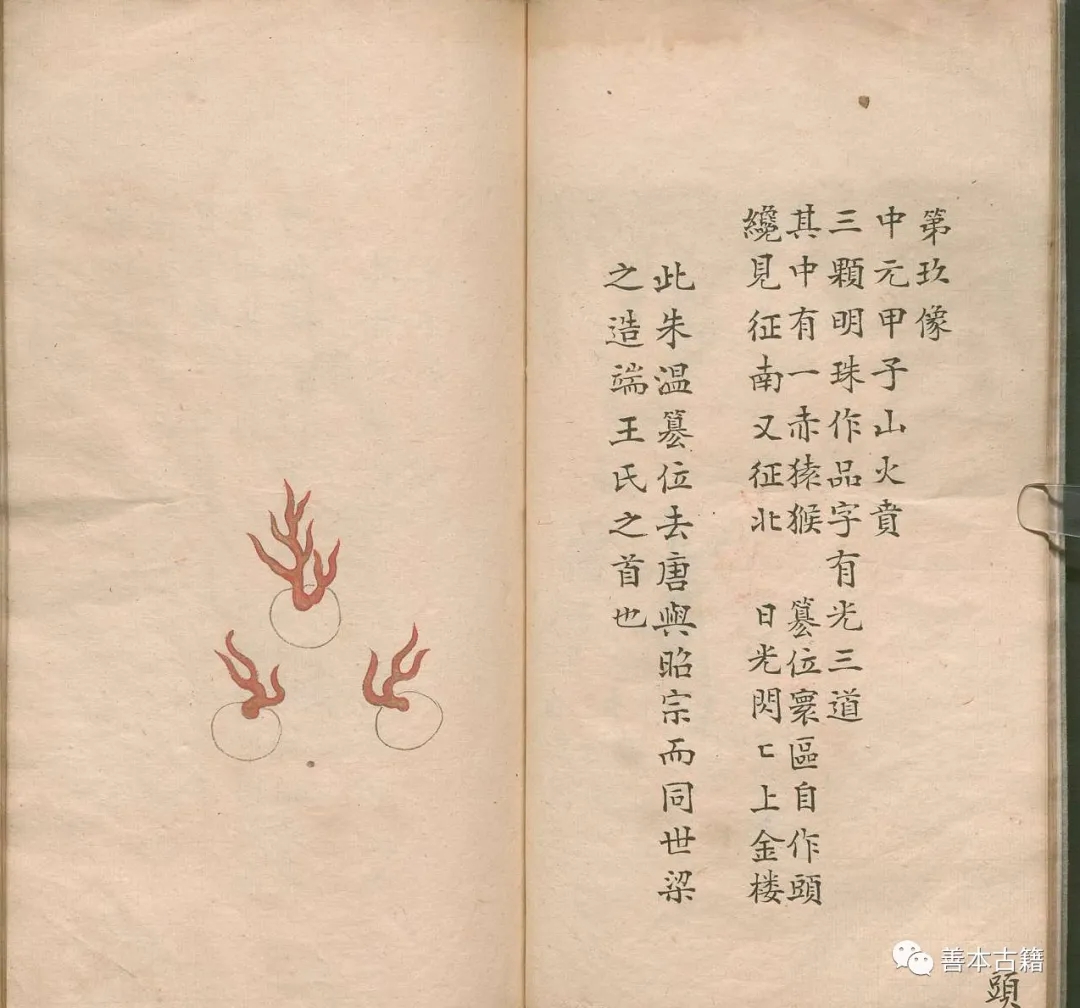 第玖像
中元甲子山火賁
三顆明珠作品字有光三道
其中有一赤猿猴　篡位寰區自作頭
纔見征南又征北　日光閃匕上金楼
此朱温篡位去唐與昭宗而同世梁
之造端王氏之首也
頭
善本古籍